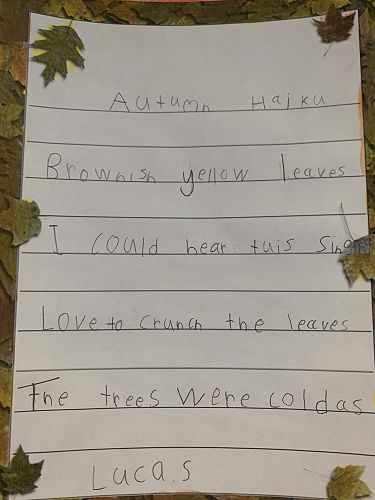 Autumn Haiku
Brownish yellow leaves
I could hear tuis singing
Love to crunch the leaves
The trees were coldas
Lucas